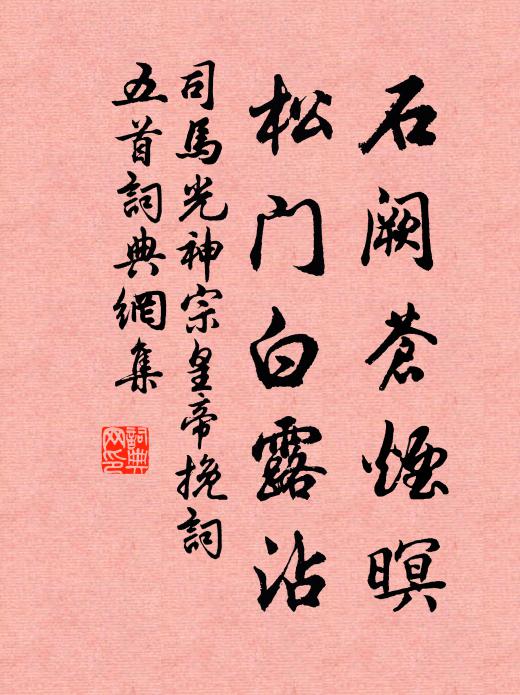 石阙蒼煙暝
松门白露沾
司馬光神宗皇帝挽詞
五首詞典網集
詞典
网印